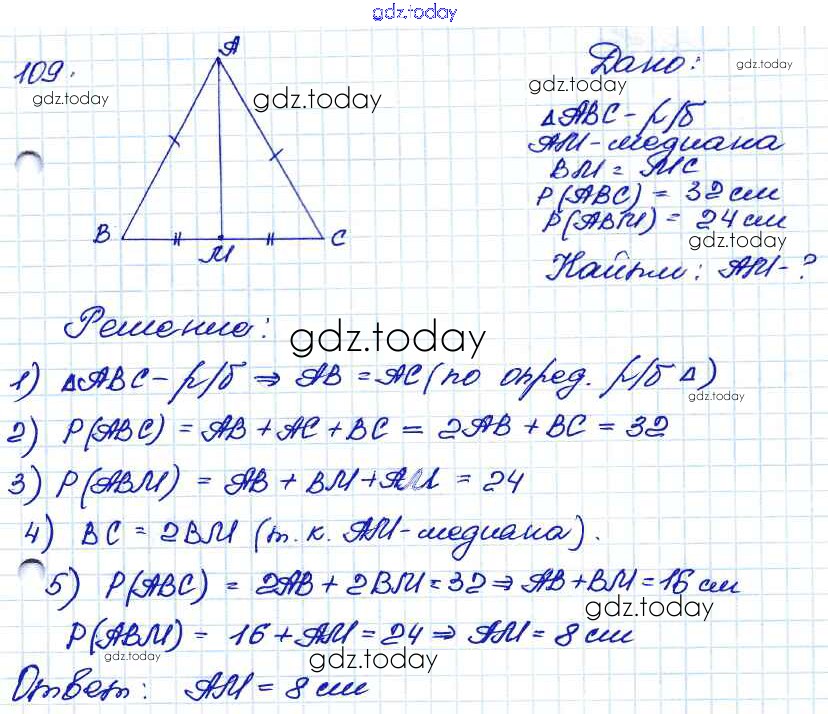 gdz.today
109.
gdz.today
A
gdz.today
B
M
C
Дано:
gdz.today
gdz.today
△ABC - р/б
AM - медиана
BM = MC
P(ABC) = 32 см
P(ABM) = 24 см
gdz.today
Найти: AM - ?
Решение:
gdz.today
1) △ABC - р/б ⇒ AB = AC (по опред. р/б △)
gdz.today
2) P(ABC) = AB + AC + BC = 2AB + BC = 32
3) P(ABM) = AB + BM + AM = 24
4) BC = 2BM (т.к. AM - медиана).
5) P(ABC) = 2AB + 2BM = 32 ⇒ AB + BM = 16 см
gdz.today
P(ABM) = 16 + AM = 24 ⇒ AM = 8 см
gdz.today
gdz.today
Ответ: AM = 8 см